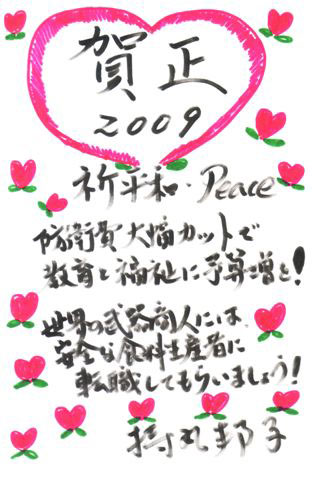 賀正
2009
祈平和・Peace
防衛費大幅カットで
教育と福祉に予算増を!
世界の武器商人には、
安全な食料生産者に
転職してもらいましょう!
持丸邦子